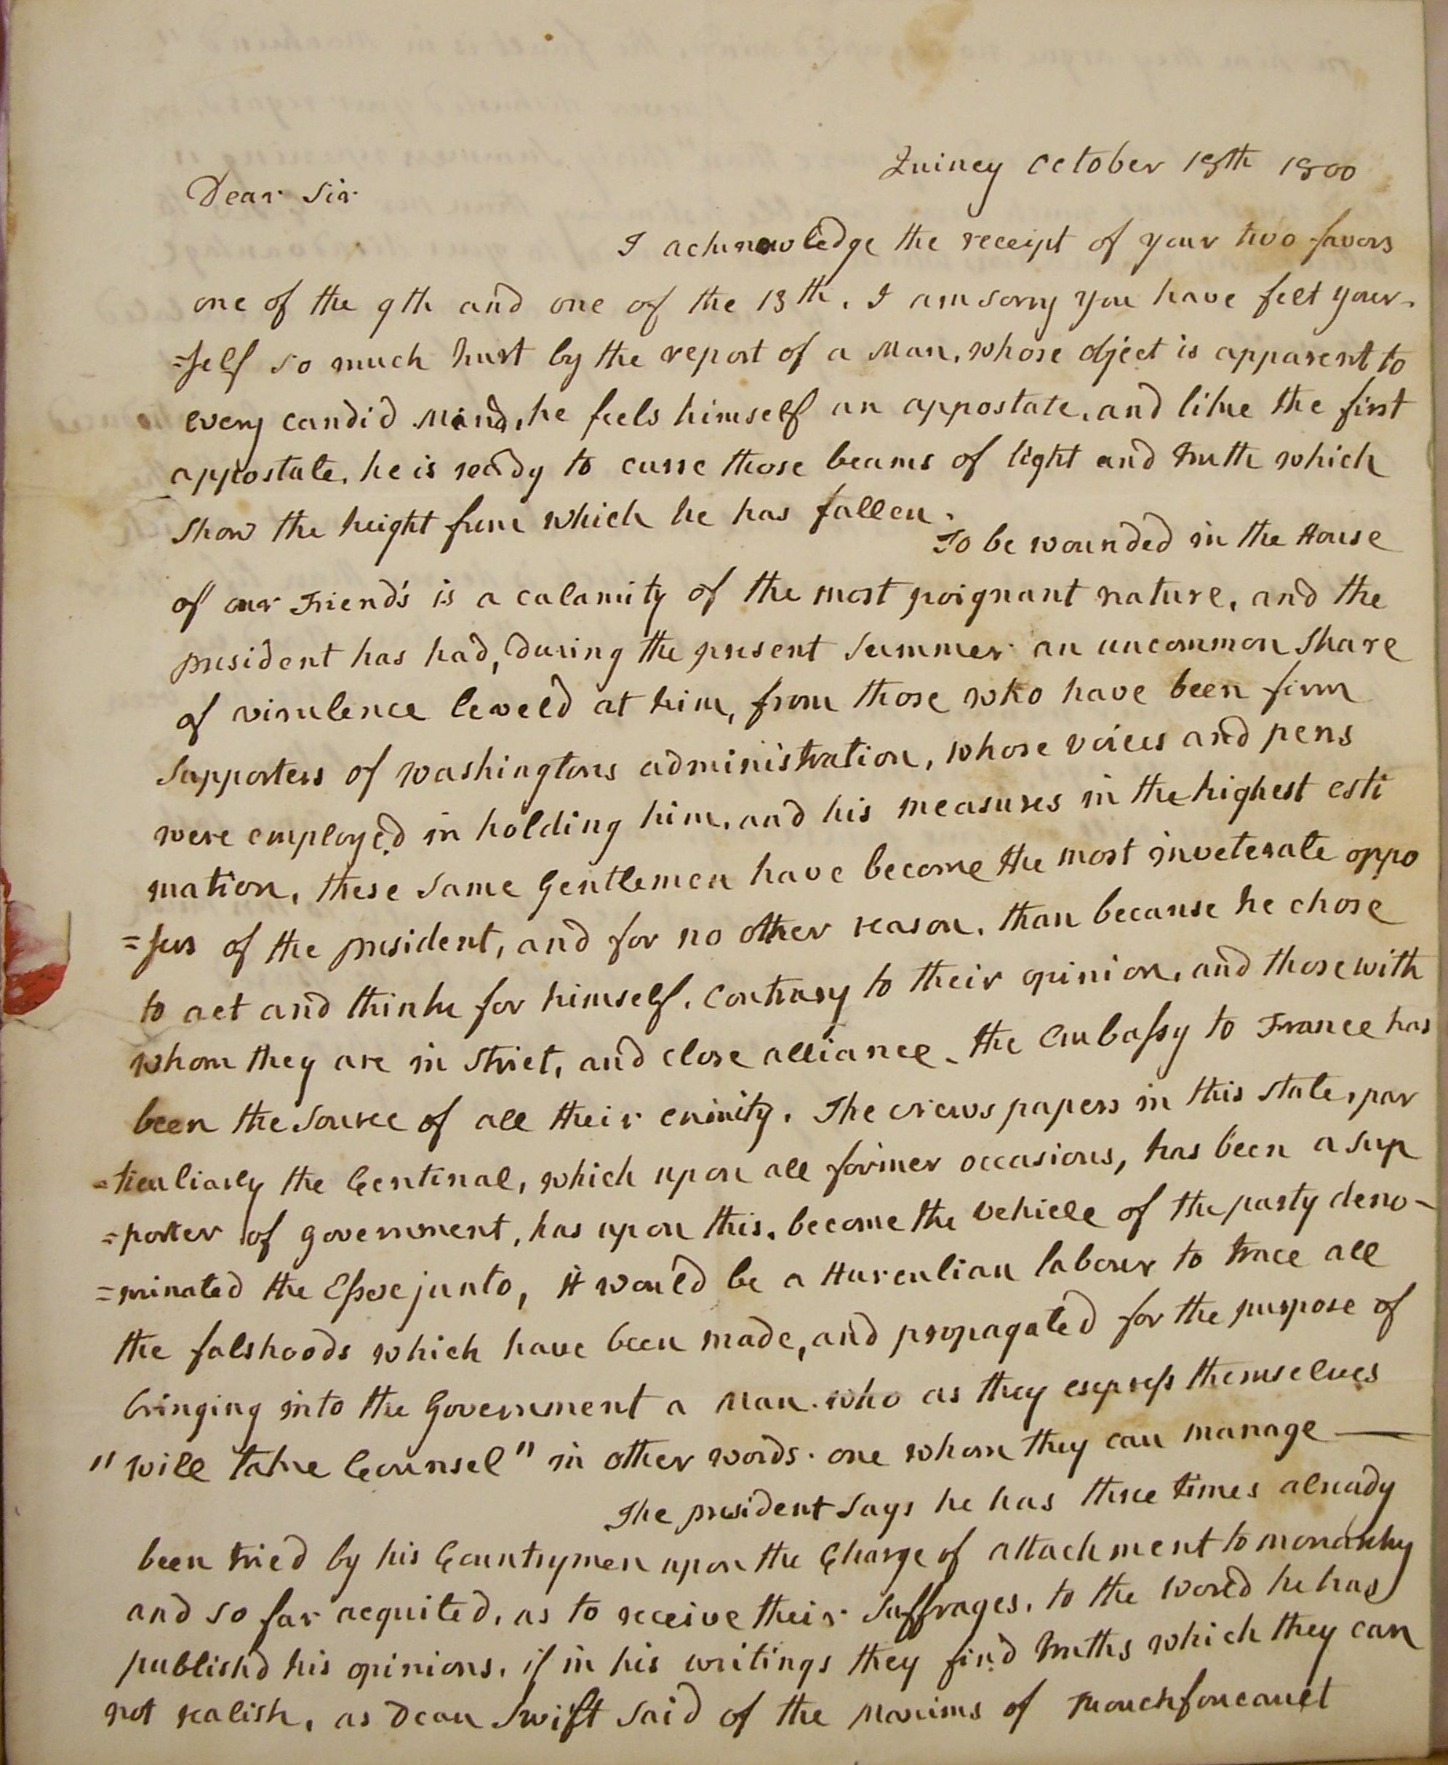 Quincy october 15th 1800
Dear Sir
I acknowledge the receipt of your two favors
one of the 9th and one of the 13th. I am sorry you have felt your-
=self so much hurt by the report of a Man, whose object is apparent to
every candid Mind, he feels himself an appostate, and like the first
appostate, he is ready to curse those beams of light and truth which
show the height from which he has fallen.
To be wounded in the House
of our Friend's is a calamity of the most poignant nature, and the
president has had, during the present summer an uncommon share
of virulence leveld at him, from those who have been firm
supporters of washingtons administration, whose voices and pens
were employed in holding him, and his measures in the highest esti
mation, these same Gentlemen have become the most inveterate oppo
=sers of the president, and for no other reason, than because he chose
to act and think for himself, contrary to their opinion, and those with
whom they are in strict, and close alliance. the Embassy to France has
been the source of all their enimity. The news papers in this state, par
=ticuliarly the Centinal, which upon all former occasions, has been a sup
=porter of government, has upon this, become the vehicle of the party deno-
=minated the Essex junto, it would be a Hurculian labour to trace all
the falshoods which have been made, and propagated for the purpose of
bringing into the Government a Man. who as they express themselves
"will take Counsel" in other words. one whom they can manage —
The president says he has three times already
been tried by his Countrymen upon the Charge of attachment to monarchy
and so far acquited, as to receive their suffrages. to the world he has
publishd his opinions, if in his writings they find truths which they can
not realish, as Dean Swift said of the Maxims of